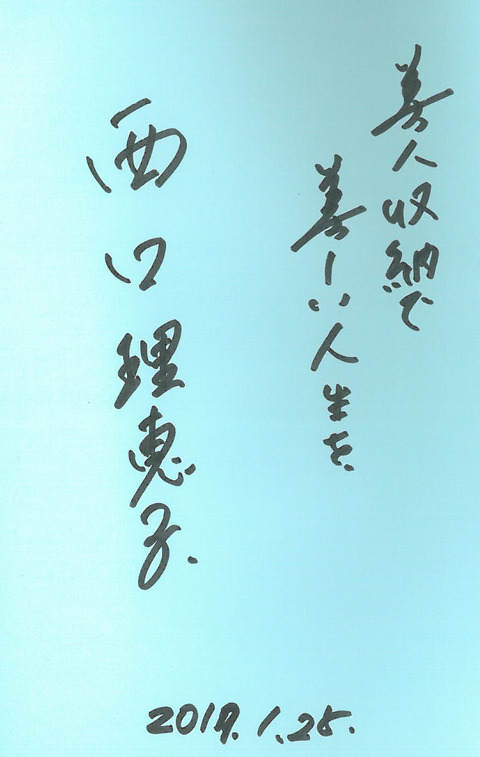 美人収納で
美しい人生を、
西口理恵子.
2019.1.25.